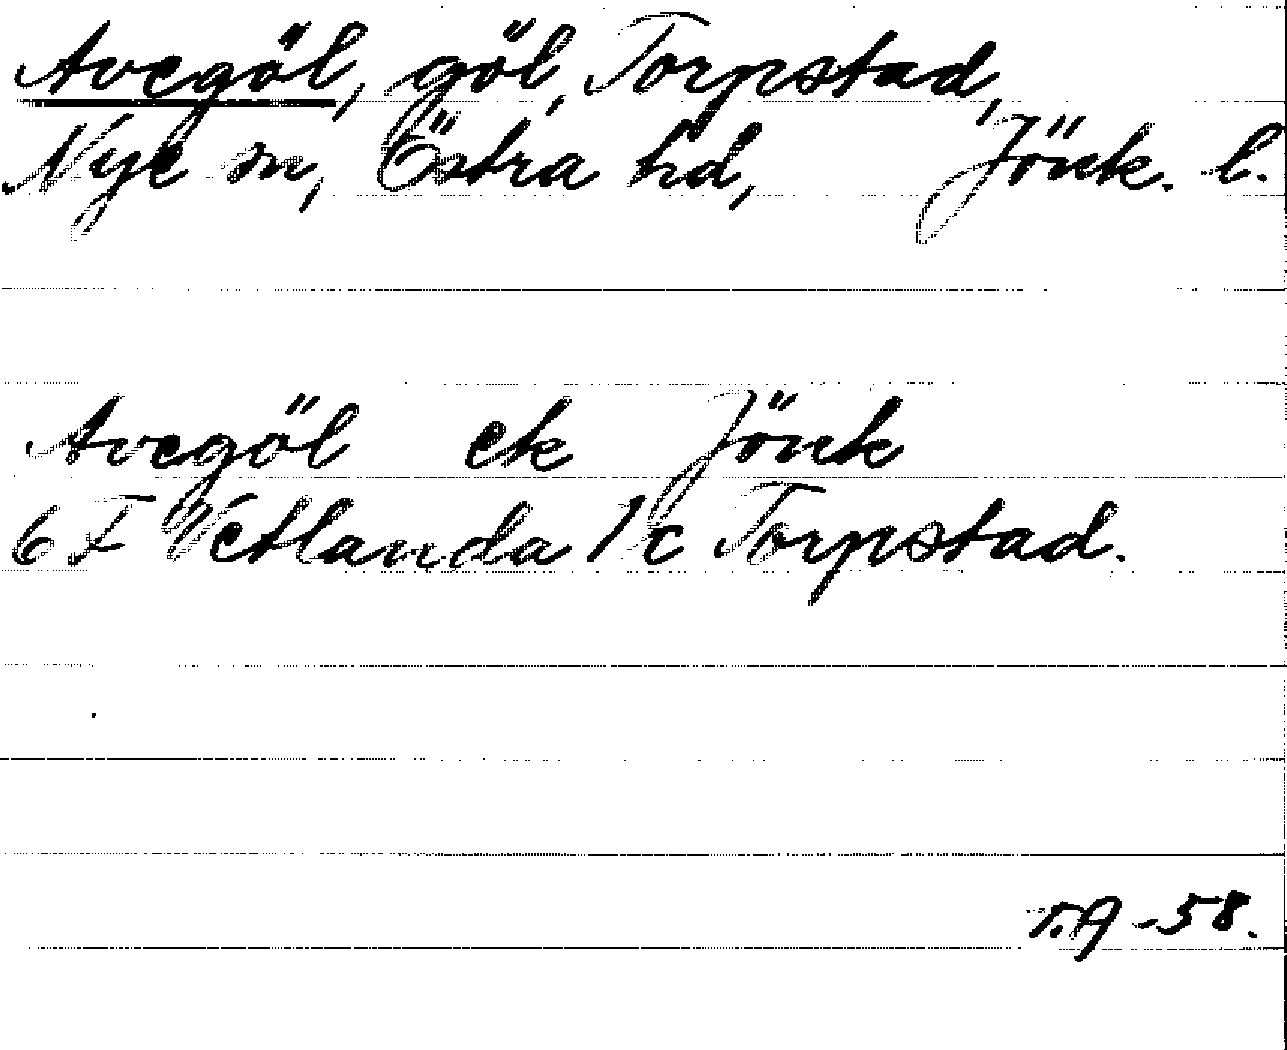 Avegöl, göl, Torpstad,
Nye sn, Östra hd, Jönk. l.
Avegöl ek Jönk
6 F Vetlanda 1 c Torpstad.
T.A -58.